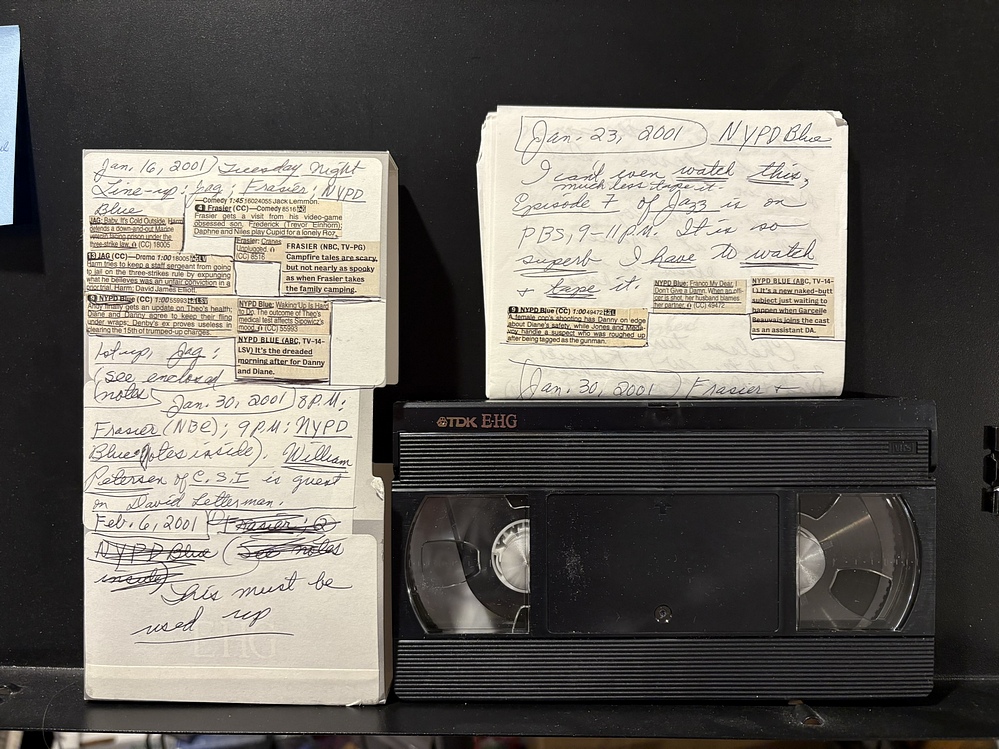 Jan. 16, 2001) Tuesday Night
Line-up: Jag; Frasier; NYPD
Blue
JAG: Baby, It's Cold Outside. Harm
defends a down-and-out Marine
facing prison under the
three-strike law. (CC) 18005
—Comedy 1:45 16024055 Jack Lemmon.
4 Frasier (CC)—Comedy 8516
Frasier gets a visit from his video-game
obsessed son, Frederick (Trevor Einhorn);
Daphne and Niles play Cupid for a lonely Roz.
Frasier: Cranes
Unplugged.
(CC) 8516
FRASIER (NBC, TV-PG)
Campfire tales are scary,
but not nearly as spooky
as when Frasier takes
the family camping.
13 JAG (CC)—Drama 1:00 18005
Harm tries to keep a staff sergeant from going
to jail on the three-strikes rule by expunging
what he believes was an unfair conviction in a
prior trial. Harm: David James Elliott.
9 NYPD Blue (CC) 1:00 55993
Andy finally gets an update on Theo's health;
Diane and Danny agree to keep their fling
under wraps; Denby's ex proves useless in
clearing the 15th of trumped-up charges.
NYPD Blue: Waking Up Is Hard
to Do. The outcome of Theo's
medical test affects Sipowicz's
mood. (CC) 55993
NYPD BLUE (ABC, TV-14-
LSV) It's the dreaded
morning after for Danny
and Diane.
1st up, Jag:
(see enclosed
notes)
Jan. 30, 2001) 8 P.M:
Frasier (NBC); 9 P.M: NYPD
Blue (Notes inside). William
Petersen of C.S.I is guest
on David Letterman.
Feb. 6, 2001 (Frasier; 2
NYPD Blue (See notes
inside)
This must be
used up
E-HG
Jan. 23, 2001) NYPD Blue
I can't even watch this,
much less tape it.
Episode 7 of Jazz is on
PBS, 9-11 P.M. It is so
superb I have to watch
+ tape it.
NYPD Blue: Franco My Dear, I
Don't Give a Damn. When an offi-
cer is shot, her husband blames
her partner. (CC) 49472
NYPD BLUE (ABC, TV-14-
L) It's a new naked-butt
subject just waiting to
happen when Garcelle
Beauvais joins the cast
as an assistant DA.
9 NYPD Blue (CC) 1:00 49472
A female cop's shooting has Danny on edge
about Diane's safety, while Jones and Meda-
voy handle a suspect who was roughed up
after being tagged as the gunman.
Jan. 30, 2001) Frasier +
TDK E-HG
VHS